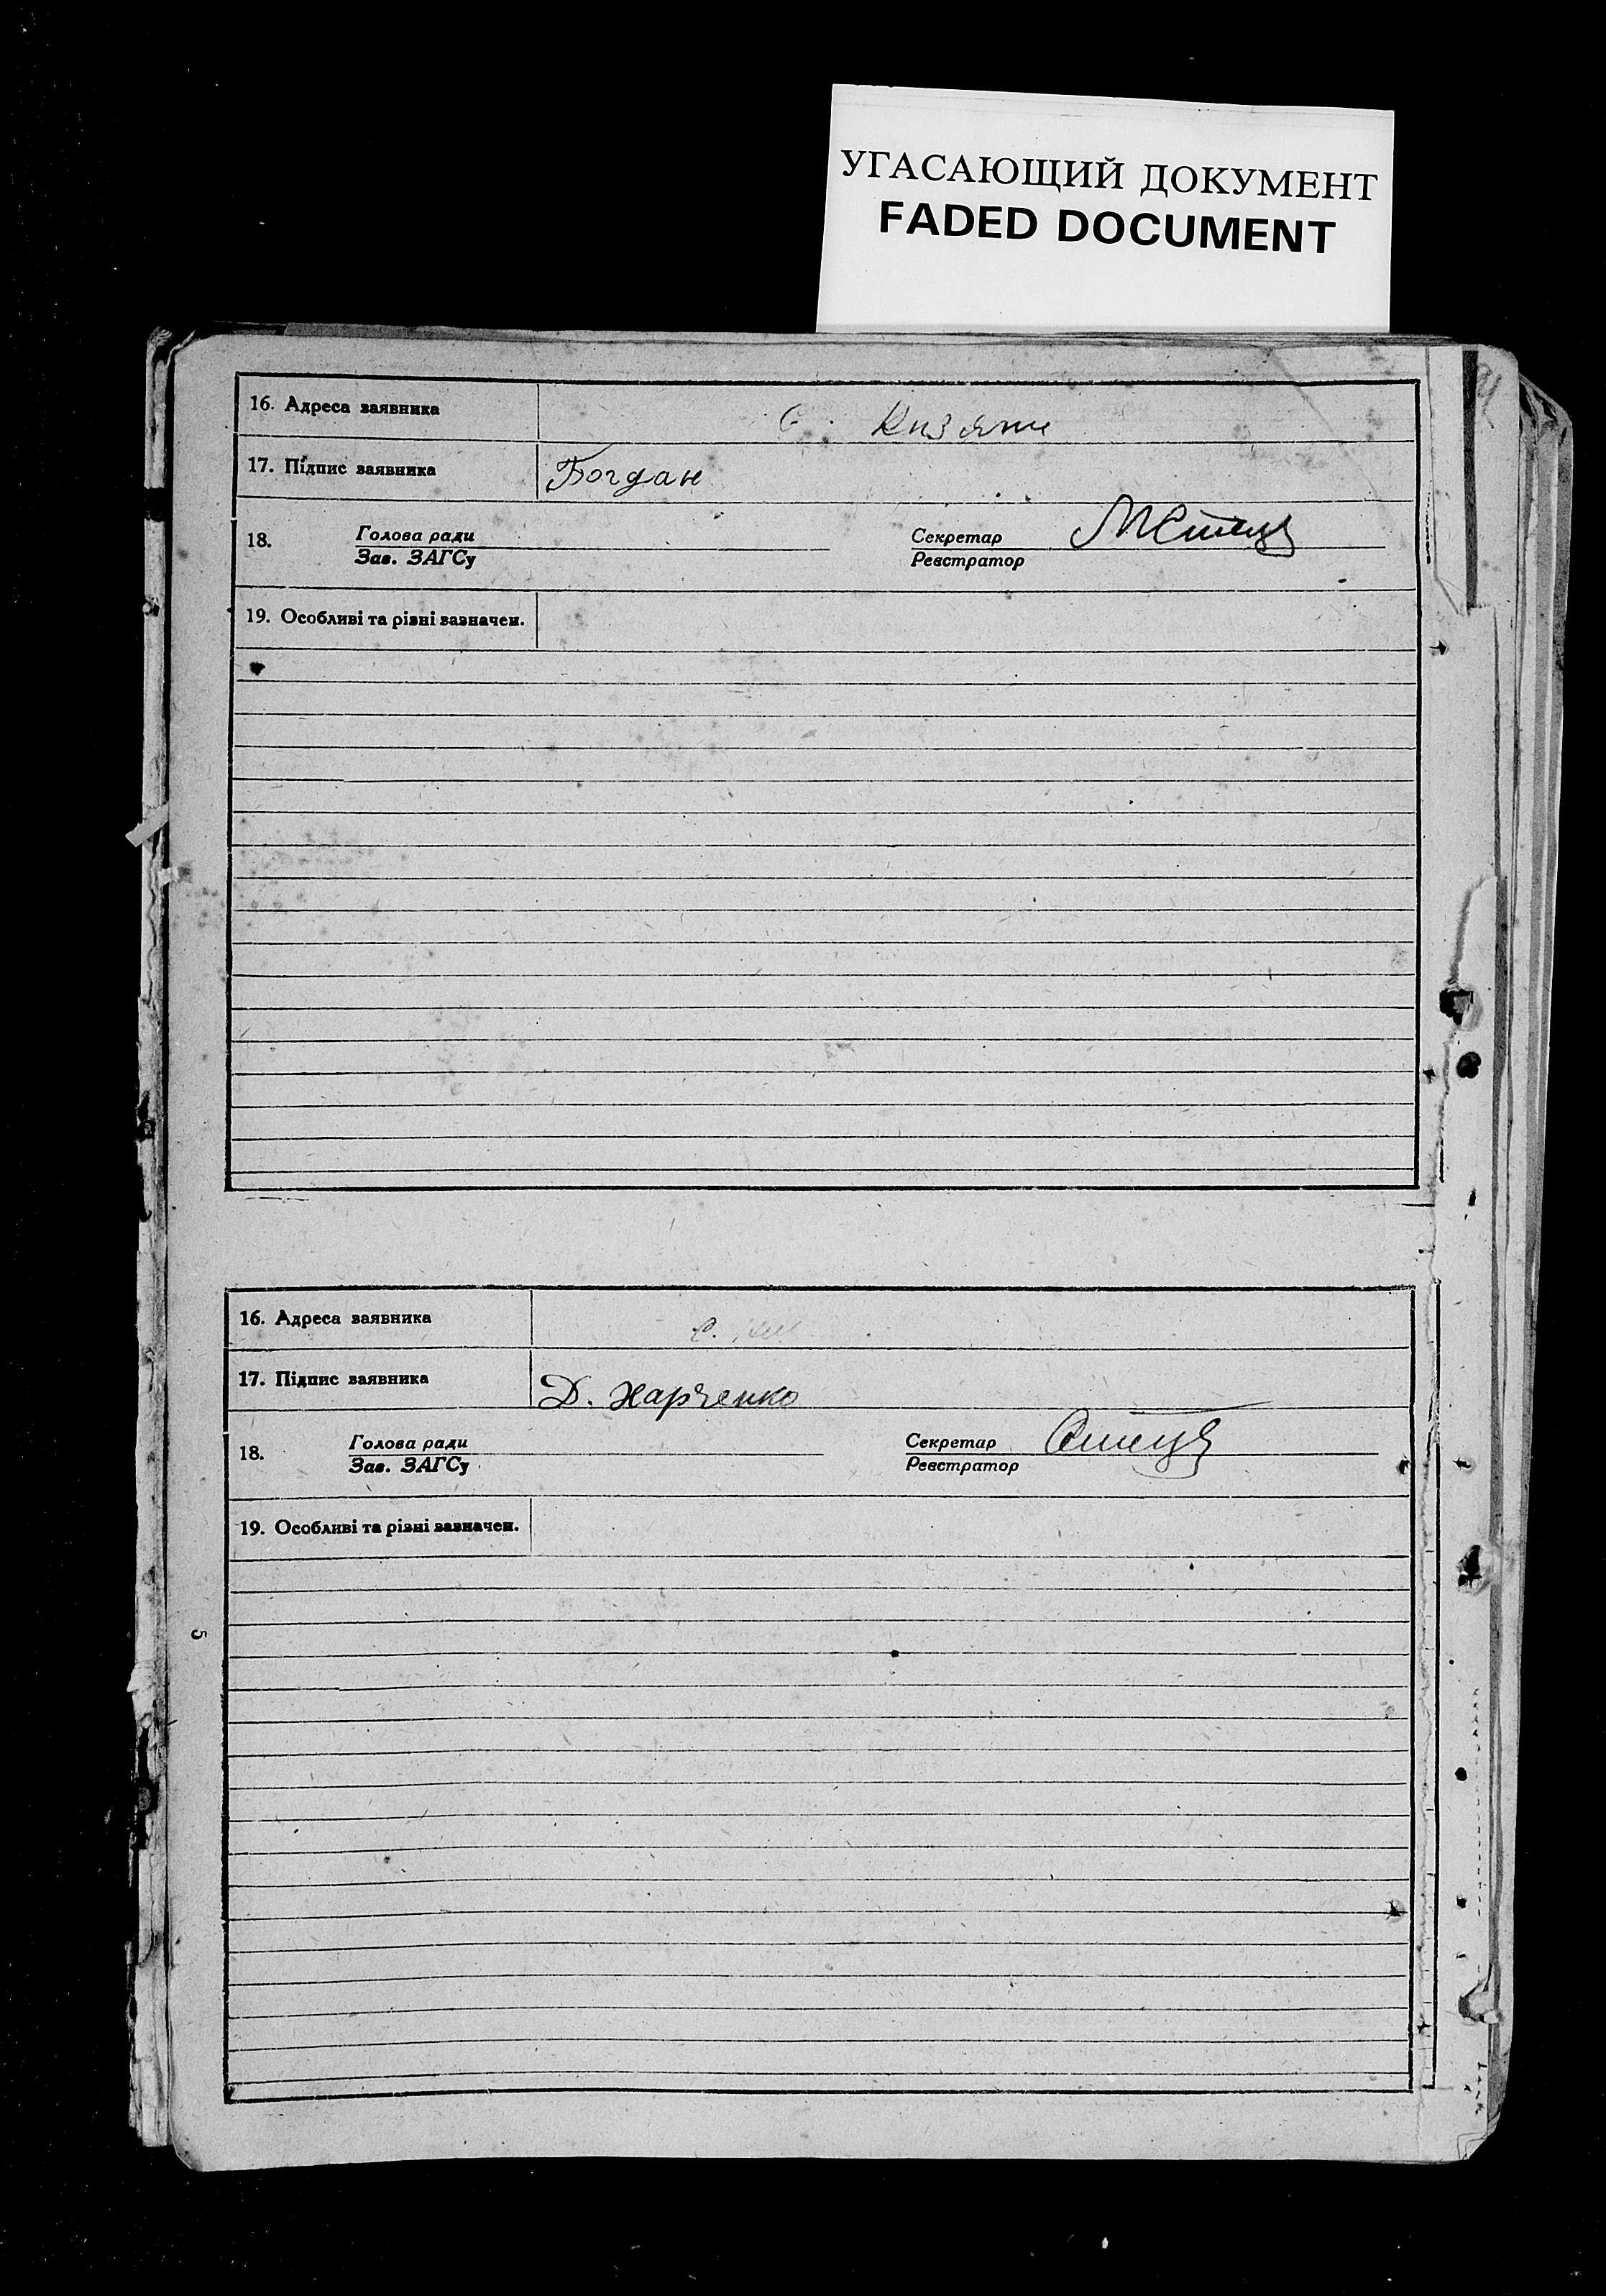 УГАСАЮЩИЙ ДОКУМЕНТ
FADED DOCUMENT
16. Адреса заявника С.
17. Підпис заявника Богдан
18. Голова ради Секретар
Зав. ЗАГСу Реєстратор
19. Особливі та різні зазначен.
16. Адреса заявника с.
17. Підпис заявника Д. Харченко
18. Голова ради Секретар
Зав. ЗАГСу Реєстратор
19. Особливі та різні зазначен.
5